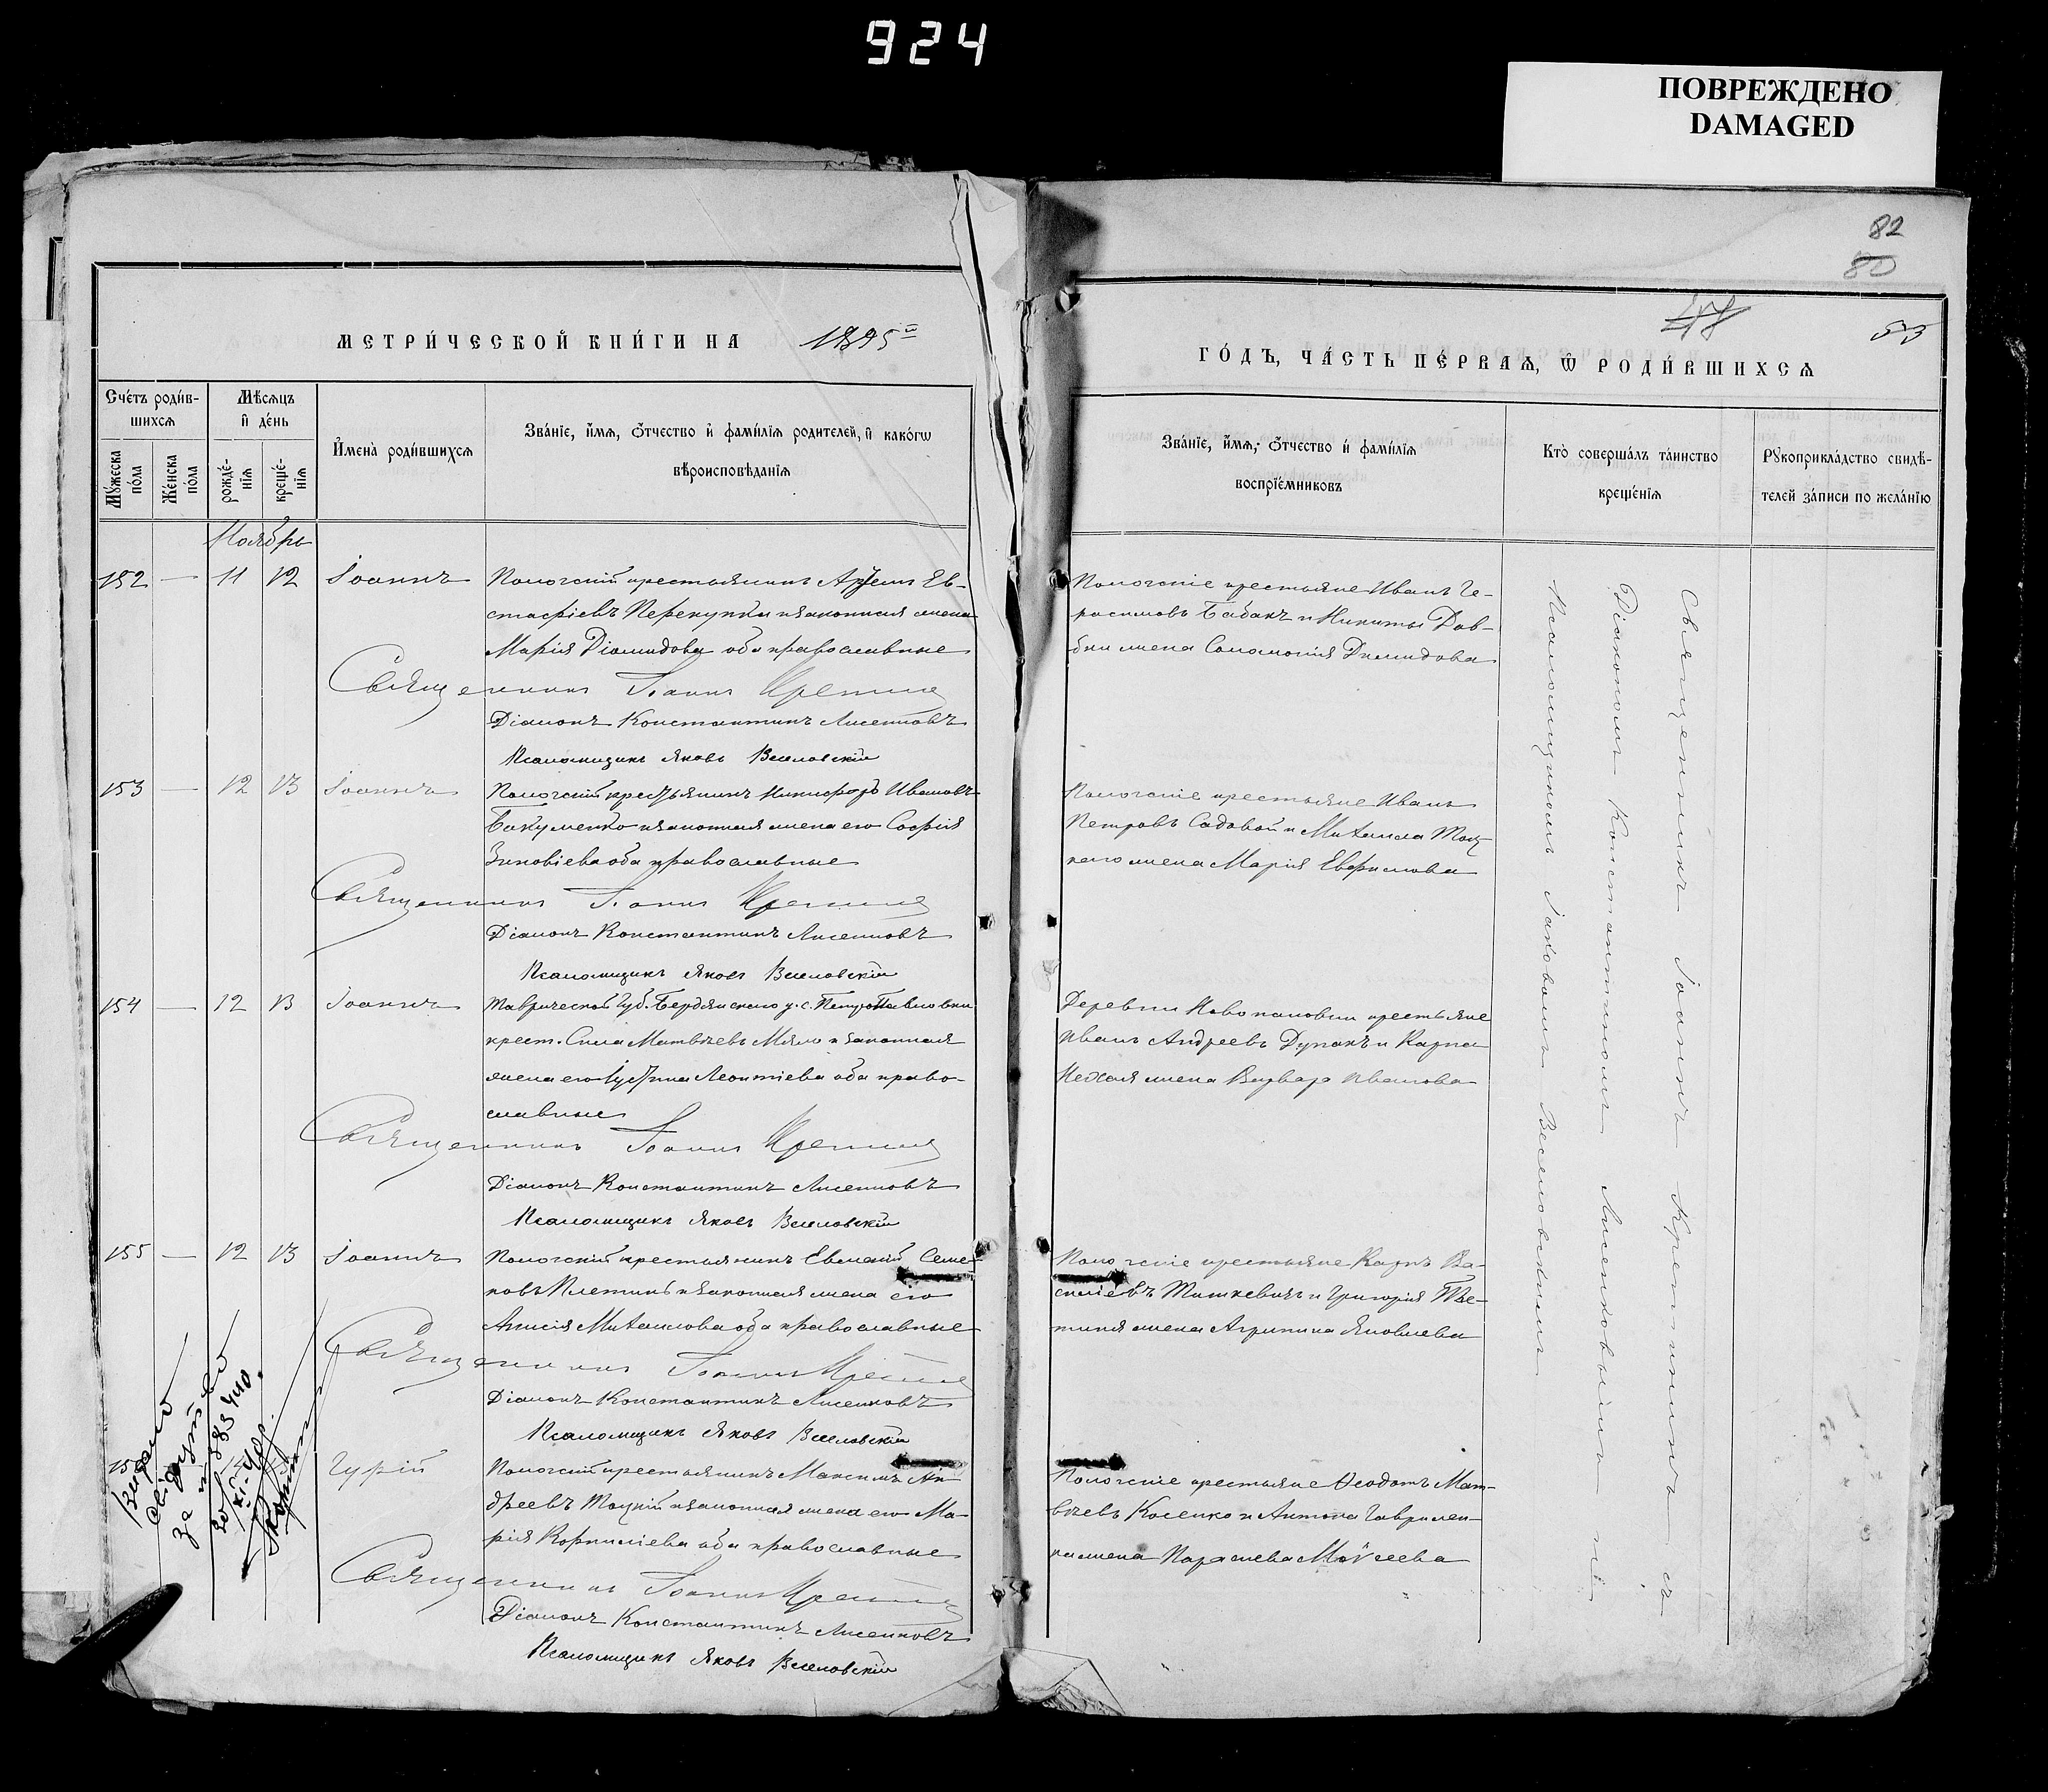 924
ПОВРЕЖДЕНО
DAMAGED
82
80
53
МЕТРИ́ЧЕСКОЙ КНИ́ГИ НА 1895
ГО́ДЪ, ЧА́СТЬ ПЕ́РВАѦ, Ѡ҆ РОДИ́ВШИХСѦ
Сче́тъ роди́в-
шихсѧ
Мꙋ́жеска по́ла
Же́нска по́ла
Мѣ́сѧцъ
и҆ де́нь
рожде́-
нїѧ
креще́-
нїѧ
И҆мена̀ роди́вшихсѧ
Зва́нїе, и҆́мѧ, ѻ҆́тчество и҆ фами́лїѧ роди́телей, и҆ како́гѡ
вѣроисповѣ́данїѧ
Зва́нїе, и҆́мѧ, ѻ҆́тчество и҆ фами́лїѧ
воспрїе́мниковъ
Кто̀ соверша́лъ та́инство
креще́нїѧ
Рꙋкоприкла́дство свидѣ́-
телей за́писи по жела́нїю
Ноябрь
152 — 11 12 Іоаннъ
Пологскій крестьянинъ Артемъ Ев-
стафіевъ Перекупка и законная жена
Марія Діомидова оба православные
Священникъ Іоаннъ
Діаконъ Константинъ Лисенковъ
Псаломщикъ Яковъ Веселовскій
Пологскіе крестьяне Иванъ Ге-
расимовъ Бабакъ и Никиты Дов-
бни жена Соломонія Димидова
153 — 12 13 Іоаннъ
Пологскій крестьянинъ Никифоръ Ивановъ
Бакуменко и законная жена его Софія
Зиновіева оба православные
Священникъ Іоаннъ
Діаконъ Константинъ Лисенковъ
Псаломщикъ Яковъ Веселовскій
Пологскіе крестьяне Иванъ
Петровъ Садовой и Михаила Тоц-
каго жена Марія Евфимова
154 — 12 13 Іоаннъ
Таврической Губ. Бердянскаго у. с. Петропавловки
крест. Сила Матвѣевъ и законная
жена его Іустина Леонтіева оба право-
славные
Священникъ Іоаннъ
Діаконъ Константинъ Лисенковъ
Псаломщикъ Яковъ Веселовскій
Деревни Новопавловки крестьяне
Иванъ Андреевъ и Карпа
жена Варвара Иванова
155 — 12 13 Іоаннъ
Пологскій крестьянинъ Евменій Семе-
новъ Плетинь и законная жена его
Анисія Михаилова оба православные
Священникъ Іоаннъ
Діаконъ Константинъ Лисенковъ
Псаломщикъ Яковъ Веселовскій
Пологскіе крестьяне Карпъ Ва-
силіевъ Тишкевичъ и Григорія Пле-
тиня жена Агрипина Яковлева
Гурій
Пологскій крестьянинъ Максимъ Ан-
дреевъ Тоцкій и законная жена его Ма-
рія Корнилієва оба православные
Священникъ Іоаннъ
Діаконъ Константинъ Лисенковъ
Псаломщикъ Яковъ Веселовскій
Пологскіе крестьяне Ѳеодотъ Мат-
вѣевъ Косенко и Антона Гаврилен-
ка жена Параскева Моѵсеева
Священникъ Іоаннъ съ
Діакономъ Константиномъ Лисенковымъ и
Псаломщикомъ Іаковомъ Веселовскимъ